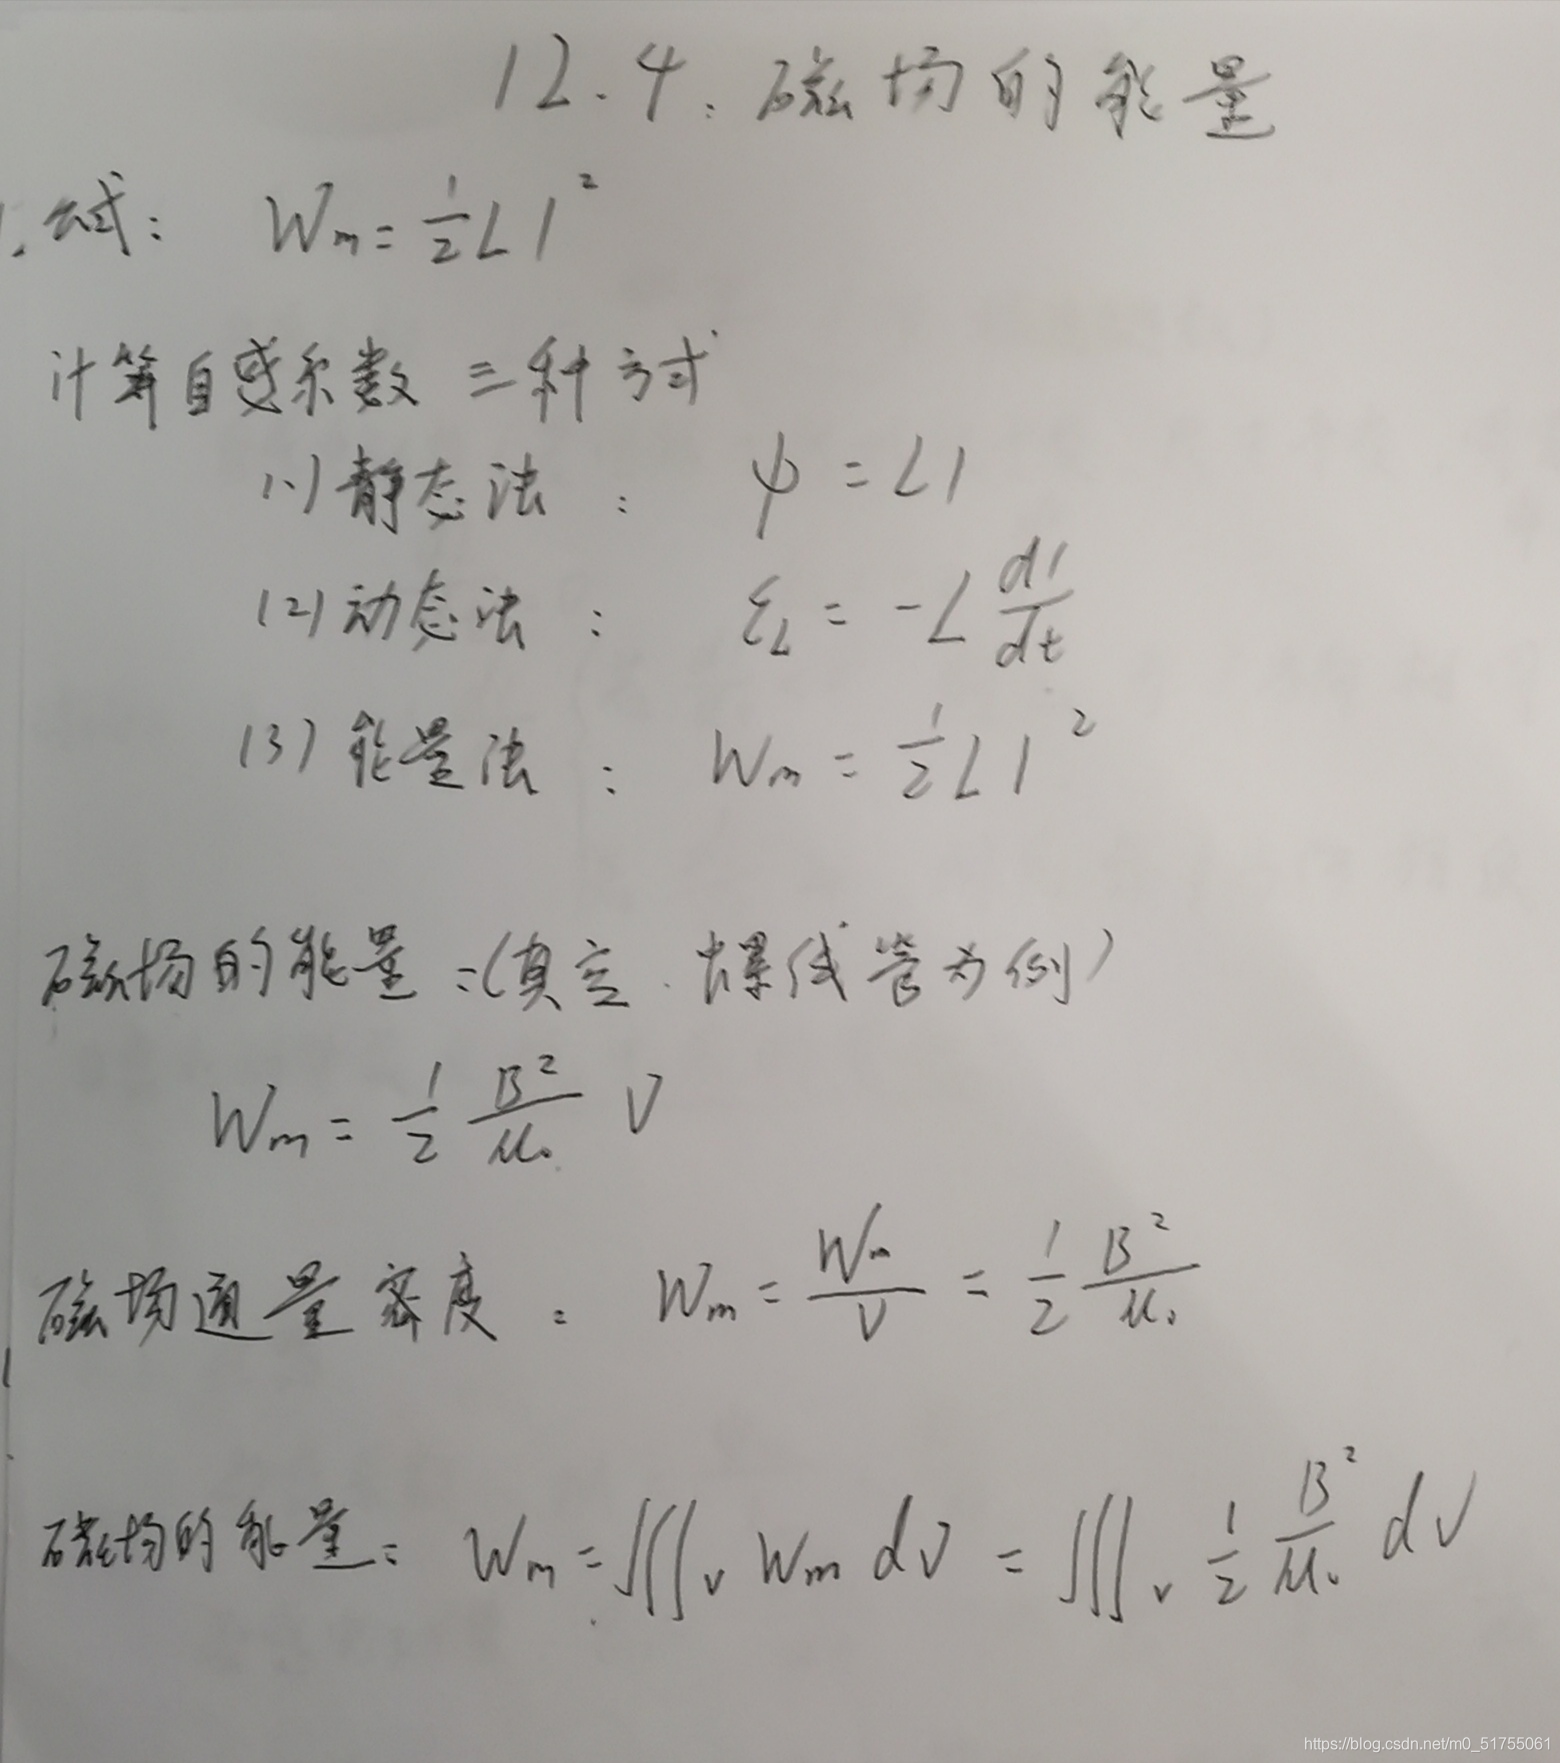 12.4. 磁场的能量
1. 公式: Wm = 1/2 L I²
计算自感系数三种方式
(1) 静态法: ψ = LI
(2) 动态法: ε_L = -L dI/dt
(3) 能量法: Wm = 1/2 L I²
磁场的能量:(真空.螺线管为例)
Wm = 1/2 B²/μ₀ V
磁场通量密度: wm = Wm/V = 1/2 B²/μ₀
磁场的能量: Wm = ∭_V wm dV = ∭_V 1/2 B²/μ₀ dV
https://blog.csdn.net/m0_51755061